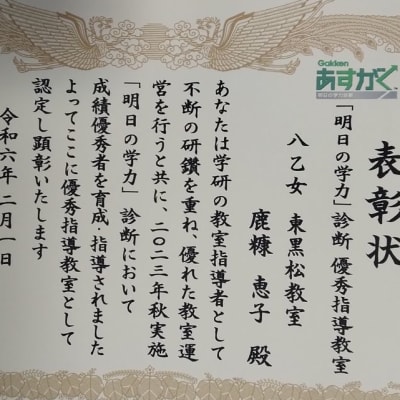 表彰状
Gakken
あすがく
「明日の学力」診断 優秀指導教室
八乙女 東黒松教室
鹿糠 恵子 殿
あなたは学研の教室指導者として
不断の研鑽を重ね、優れた教室運
営を行うと共に、二〇二三年秋実施
「明日の学力」診断において
成績優秀者を育成・指導されました
よってここに優秀指導教室として
認定し顕彰いたします
令和六年 二月一日